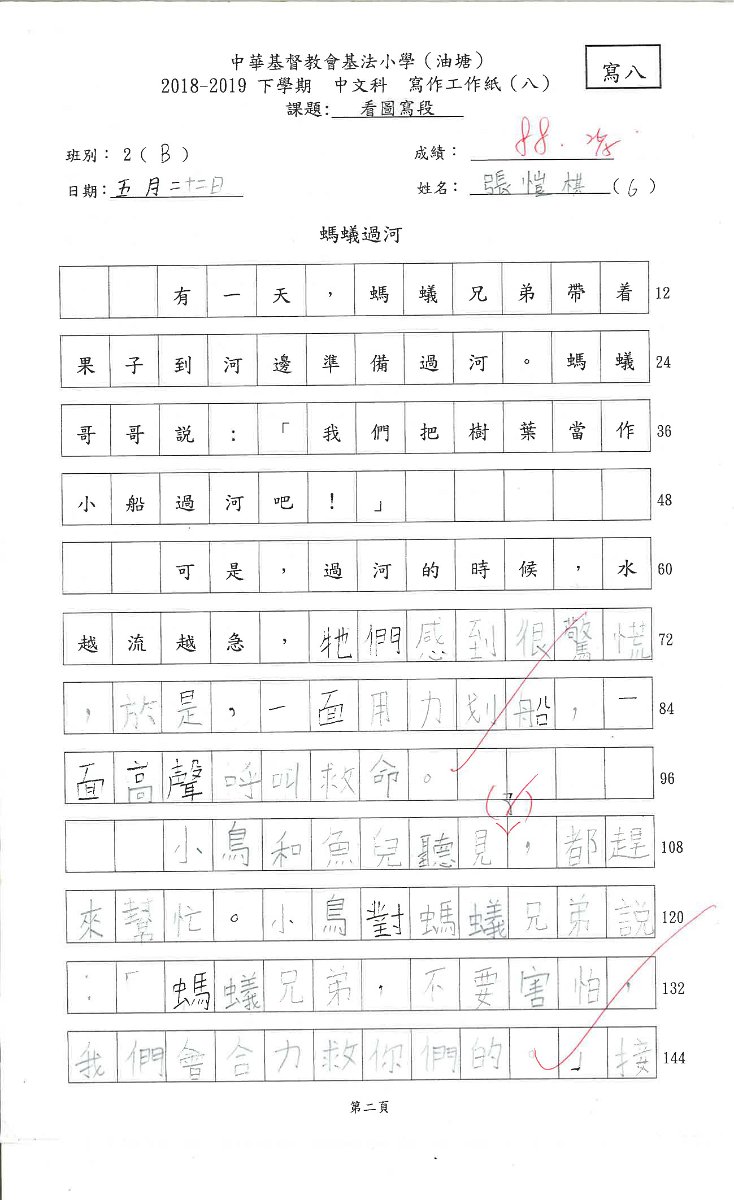 中華基督教會基法小學（油塘）
2018-2019 下學期 中文科 寫作工作紙（八）
寫八
課題: 看圖寫段
班別：2（B）
成績：88.
日期：五月二十二日
姓名：張愷棋（6）
螞蟻過河
有一天，螞蟻兄弟帶着 12
果子到河邊準備過河。螞蟻 24
哥哥說：「我們把樹葉當作 36
小船過河吧！」 48
可是，過河的時候，水 60
越流越急，牠們感到很驚慌 72
，於是，一面用力划船，一 84
面高聲呼叫救命。 96
小鳥和魚兒聽見，都趕 108
來幫忙。小鳥對螞蟻兄弟說 120
：「螞蟻兄弟，不要害怕， 132
我們會合力救你們的。」接 144
第二頁